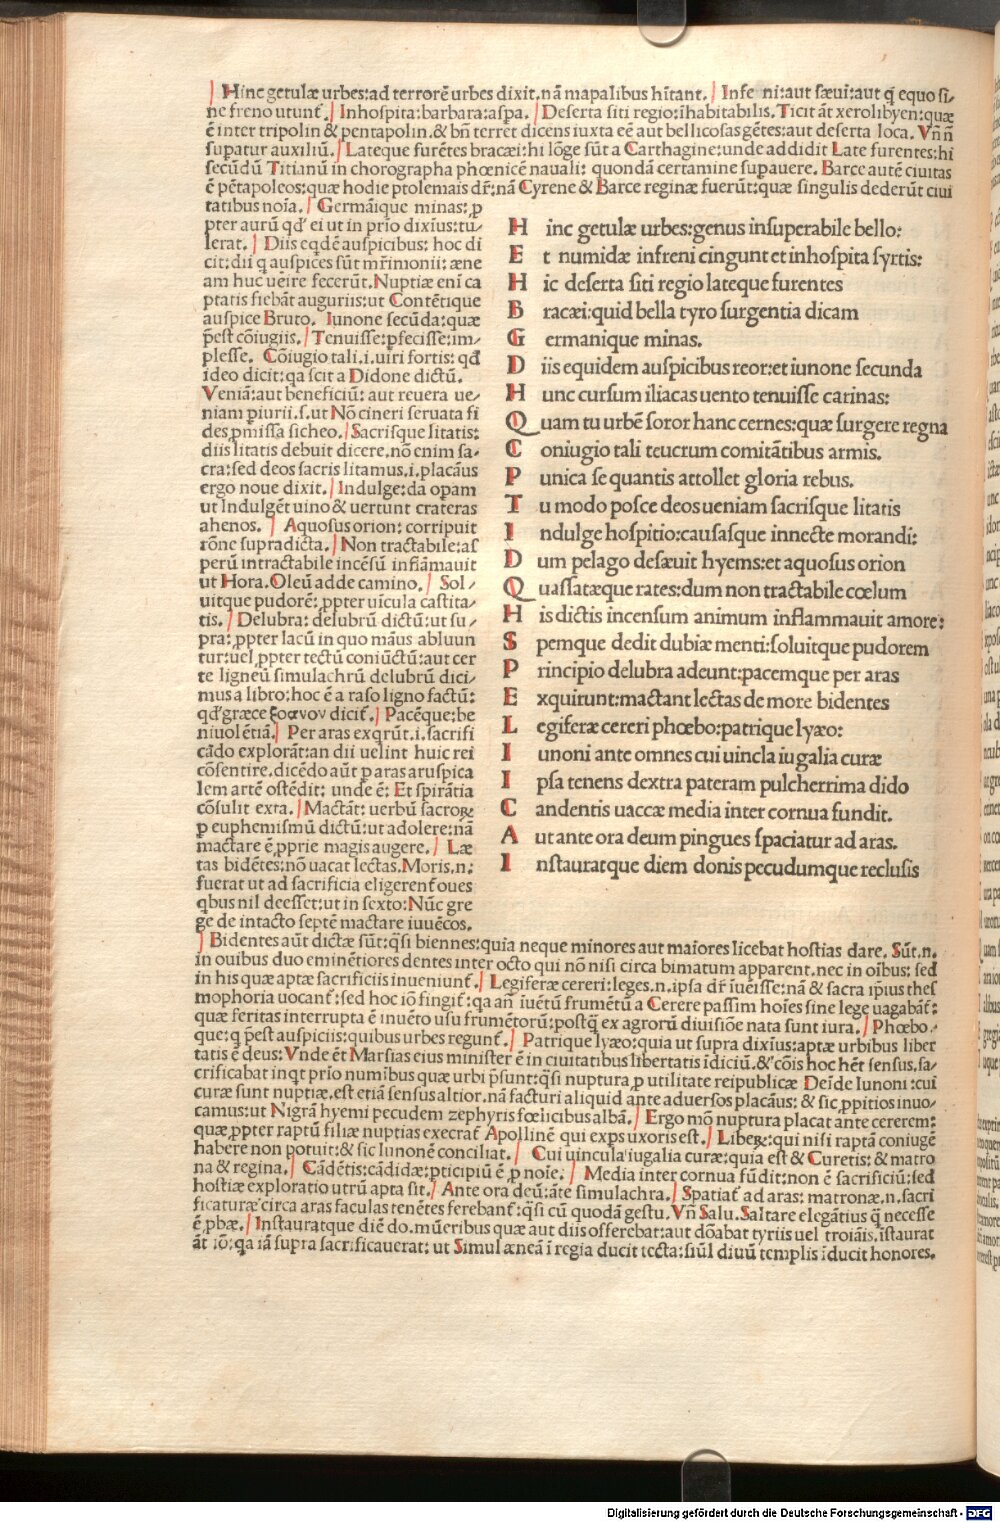 Hinc getulæ urbes:ad terrorē urbes dixit.nā mapalibus hĩtant. Infe ni:aut sæui:aut q̃ equo si/
ne freno utunt̃. Inhospita:barbara:aspa. Deserta siti regio:ĩhabitabilis. Ticit āt xerolibyen:quæ
ē inter tripolin & pentapolin.& bñ terret dicens iuxta eē aut bellicosas gētes:aut deserta loca. Vñ ñ
supatur auxiliū. Lateque furētes bracæi:hi lōge sūt a Carthagine:unde addidit Late furentes:hi
secūdū Titianū in chorographa phœnicē nauali: quondā certamine supauere. Barce autē ciuitas
ē pētapoleos:quæ hodie ptolemais dr̃:nā Cyrene & Barce reginæ fuerūt:quæ singulis dederūt ciui
tatibus noīa. Germāique minas:p
pter aurū qd' ei ut in prio dixĩus:tu/
lerat. Diis eqdē auspicibus: hoc di
cit:dii q auspices sūt mr̃imonii: æne
am huc uēire fecerūt.Nuptiæ enĩ ca
ptatis fiebāt auguriis:ut Contētique
auspice Bruto. Iunone secūda:quæ
p̄est cōiugiis. Tenuisse:pfecisse:im/
plesse. Cōiugio tali.i.uiri fortis: qd
ideo dicit:qa scit a Didone dictū.
Veniā:aut beneficiū: aut reuera ue/
niam piurii.s.ut Nō cineri seruata fi
des pmissa sicheo. Sacrisque litatis:
diis litatis debuit dicere.nō enim sa/
cra:sed deos sacris litamus.i.placāus
ergo noue dixit. Indulge:da opam
ut Indulgēt uino & uertunt crateras
ahenos. Aquosus orion: corripuit
rōne supradicta. Non tractabile:as
perū intractabile incēsū inflāmauit
ut Hora.Oleū adde camino. Sol/
uitque pudorē: ppter uĩcula castita/
tis. Delubra: delubrū dictū:ut su/
pra:ppter lacū in quo māus abluun
tur:uel ppter tectū coniūctū:aut cer
te ligneū simulachrū delubrū dici/
mus a libro:hoc ē a raso ligno factū:
qd'græce ξοανον dicit̃. Pacēque:be
niuolētiā. Per aras exqrūt.i.sacrifi
cādo explorāt:an dii uelint huic rei
cōsentire.dicēdo aūt p aras aruspica
lem artē ostēdit: unde ē: Et spirātia
cōsulit exta. Mactāt: uerbū sacroꝝ
p euphemismū dictū:ut adolere:nā
mactare ē pprie magis augere. Læ
tas bidētes:nō uacat lectas.Moris.n:
fuerat ut ad sacrificia eligerent̃ oues
qbus nil deesset:ut in sexto:Nūc gre
ge de intacto septē mactare iuuēcos.
H inc getulæ urbes:genus insuperabile bello:
E t numidæ infreni cingunt et inhospita syrtis:
H ic deserta siti regio lateque furentes
B racæi:quid bella tyro surgentia dicam
G ermanique minas.
D iis equidem auspicibus reor:et iunone secunda
H unc cursum iliacas uento tenuisse carinas:
Q uam tu urbē soror hanc cernes:quæ surgere regna
C oniugio tali teucrum comitātibus armis.
P unica se quantis attollet gloria rebus.
T u modo posce deos ueniam sacrisque litatis
I ndulge hospitio:causasque innecte morandi:
D um pelago desæuit hyems:et aquosus orion
Q uassatæque rates:dum non tractabile cœlum
H is dictis incensum animum inflammauit amore:
S pemque dedit dubiæ menti:soluitque pudorem
P rincipio delubra adeunt:pacemque per aras
E xquirunt:mactant lectas de more bidentes
L egiferæ cereri phœbo:patrique lyæo:
I unoni ante omnes cui uincla iugalia curæ
I psa tenens dextra pateram pulcherrima dido
C andentis uaccæ media inter cornua fundit.
A ut ante ora deum pingues spaciatur ad aras.
I nstauratque diem donis pecudumque reclusis
Bidentes aūt dictæ sūt:q̃si biennes:quia neque minores aut maiores licebat hostias dare. Sūt.n.
in ouibus duo eminētiores dentes inter octo qui nō nisi circa bimatum apparent.nec in oībus: sed
in his quæ aptæ sacrificiis inueniunt̃. Legiferæ cereri:leges.n.ipsa dr̃ iuēisse:nā & sacra ipĩus thes
mophoria uocant̃:sed hoc iō fingit̃:qa añ iuētū frumētū a Cerere passim hoīes sine lege uagabāt̃:
quæ feritas interrupta ē inuēto usu frumētorū:postq̃ ex agrorū diuisiōe nata sunt iura. Phœbo/
que:q p̄est auspiciis:quibus urbes regunt̃. Patrique lyæo:quia ut supra dixĩus:aptæ urbibus liber
tatis ē deus:Vnde ēt Marsias eius minister ē in ciuitatibus libertatis ĩdiciū.&'cōis hoc hēt sensus.sa/
crificabat inqt prio numĩbus quæ urbi p̄sunt:q̃si nuptura p utilitate reipublicæ Deĩde Iunoni:cui
curæ sunt nuptiæ.est etiā sensus altior.nā facturi aliquid ante aduersos placāus: & sic ppitios inuo/
camus:ut Nigrā hyemi pecudem zephyris fœlicibus albā. Ergo mō nuptura placat ante cererem:
quæ ppter raptū filiæ nuptias execrat̃ Apollinē qui exps uxoris est. Libeꝝ:qui nisi raptā coniugē
habere non potuit:& sic Iunonē conciliat. Cui uincula iugalia curæ:quia est & Curetis: & matro
na & regina. Cādētis:cādidæ:pticipiū ē p noīe. Media inter cornua fūdit:non ē sacrificiū:sed
hostiæ exploratio utrū apta sit. Ante ora deū:āte simulachra. Spatiat̃ ad aras: matronæ.n.sacri
ficaturæ circa aras faculas tenētes ferebant̃:q̃si cū quodā gestu. Vñ Salu.Saltare elegātius q̃ necesse
ē pbæ. Instauratque diē do.mūeribus quæ aut diis offerebat:aut dōabat tyriis uel troiāis.ĩstaurat
āt iō:qa iā supra sacrificauerat: ut Simul æneā ĩ regia ducit tecta:siūl diuū templis ĩducit honores.
Digitalisierung gefördert durch die Deutsche Forschungsgemeinschaft - DFG